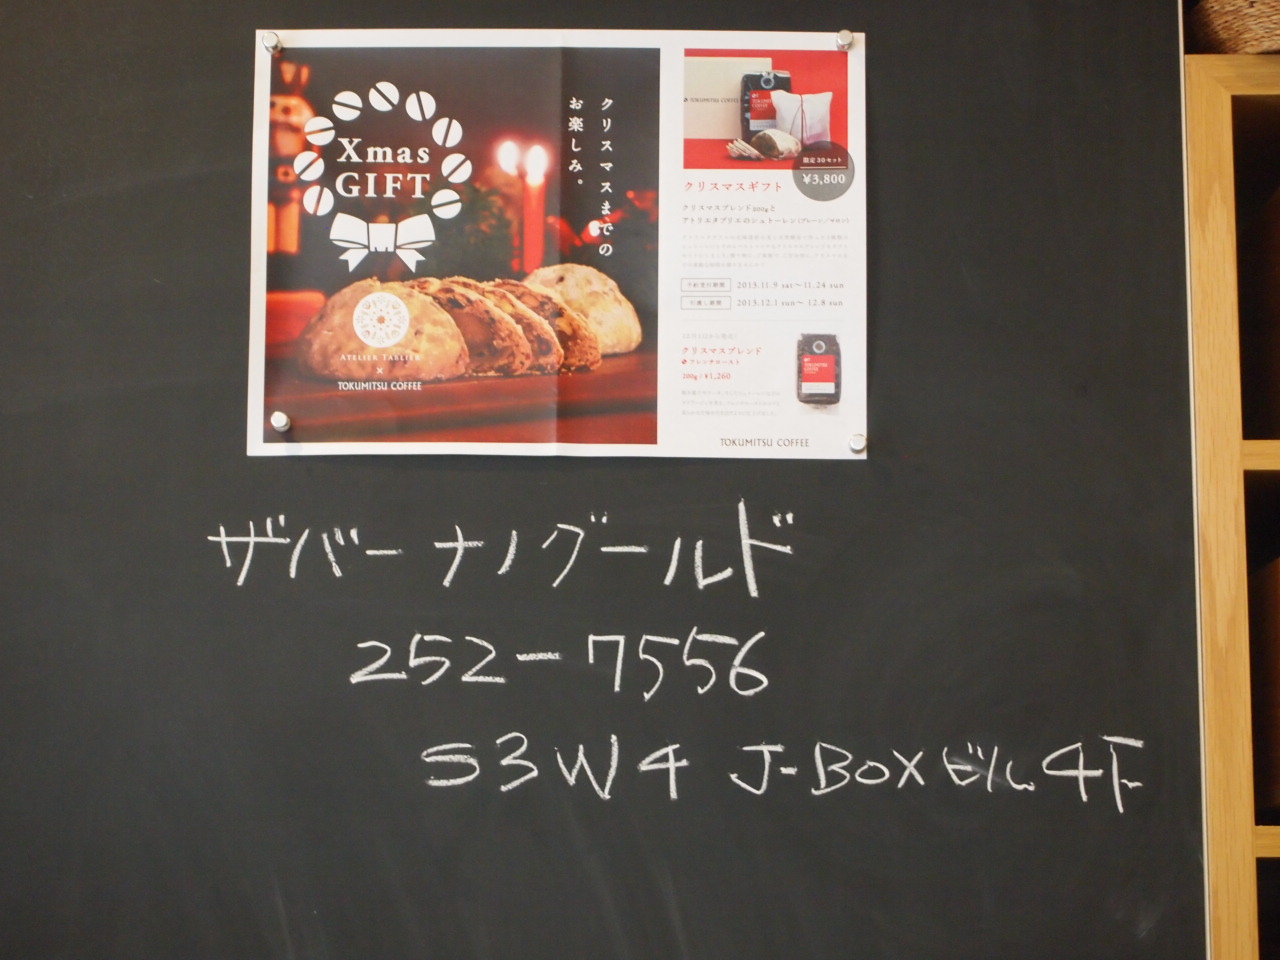 Xmas
GIFT
クリスマスまでの
お楽しみ。
ATELIER TABLIER
×
TOKUMITSU COFFEE
TOKUMITSU COFFEE
限定30セット
¥3,800
クリスマスギフト
クリスマスブレンド200gと
アトリエタブリエのシュトーレン(プレーン/マロン)
予約受付期間 2013.11.9 sat〜11.24 sun
引渡し期間 2013.12.1 sun〜 12.8 sun
クリスマスブレンド
フレンチロースト
200g / ¥1,260
TOKUMITSU COFFEE
ザバーナノグールド
252-7556
S3W4 J-BOXビル4F